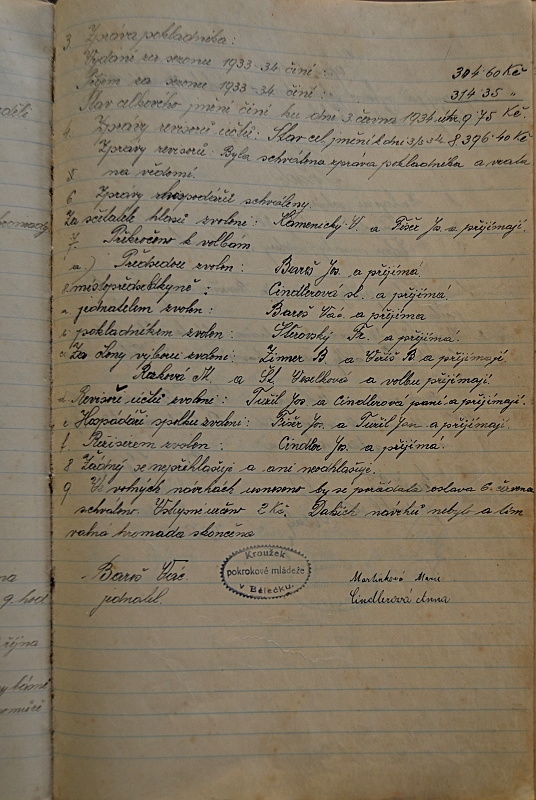 3 Zpráva pokladníka:
Vydání za sezonu 1933-34 činí: 304·60 Kč
Příjem za sezonu 1933-34 činí: 314 35 "
Stav celkového jmění činí ku dni 3. června 1934 9·75 Kč.
4. Zprávy revisorů účtů: Stav cel. jmění k dni 3/6 34. 8396·40 Kč
Zprávy revisorů: Byla schválena zpráva pokladníka a vzata
5 na vědomí.
6 Zprávy hospodářů schváleny.
Za sčitatele hlasů zvoleni: Kamenický V. a Fišer Jos. a přijímají.
7. Překročeno k volbám
a) Předsedou zvolen: Bareš Jos. a přijímá.
místopředsedkyně: Cindlerová a přijímá.
jednatelem zvolen: Bareš Vác. a přijímá
pokladníkem zvolen: Fr. a přijímá.
Za členy výboru zvoleni: Zimer B. a B. a přijímají
a St. Veselková a volbu přijímají.
d. Revisoři účtů zvoleni: Jos a Cindlerová paní a přijímají.
e Hospodáři spolku zvoleni: Fišer Jos. a Jan a přijímají.
f. Režiserem zvolen: Cindler Jos. a přijímá.
8 Žádný se nepřihlašuje a ani neodhlašuje.
9 Ve volných návrhách usneseno by se pořádala oslava 6. června
schváleno. Vstupné 2 Kč. Dalších návrhů nebylo a tím
valná hromada skončena
Bareš Vác
jednatel.
Kroužek
pokrokové mládeže
v Bělečku.
Martínková Marie
Cindlerová Anna
9. hod
října